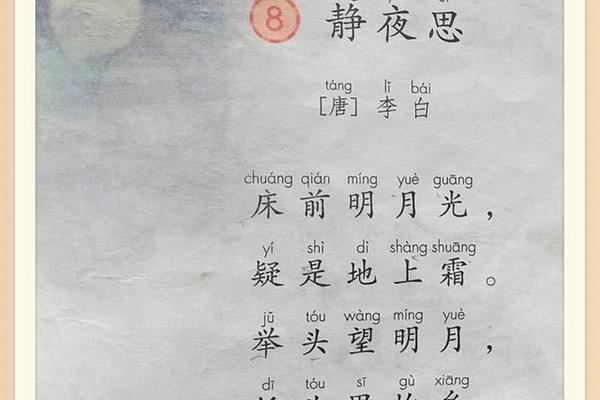 8 静夜思
táng lǐ bái
[唐] 李 白
chuáng qián míng yuè guāng
床 前 明 月 光，
yí shì dì shàng shuāng
疑 是 地 上 霜。
jǔ tóu wàng míng yuè
举 头 望 明 月，
dī tóu sī gù xiāng